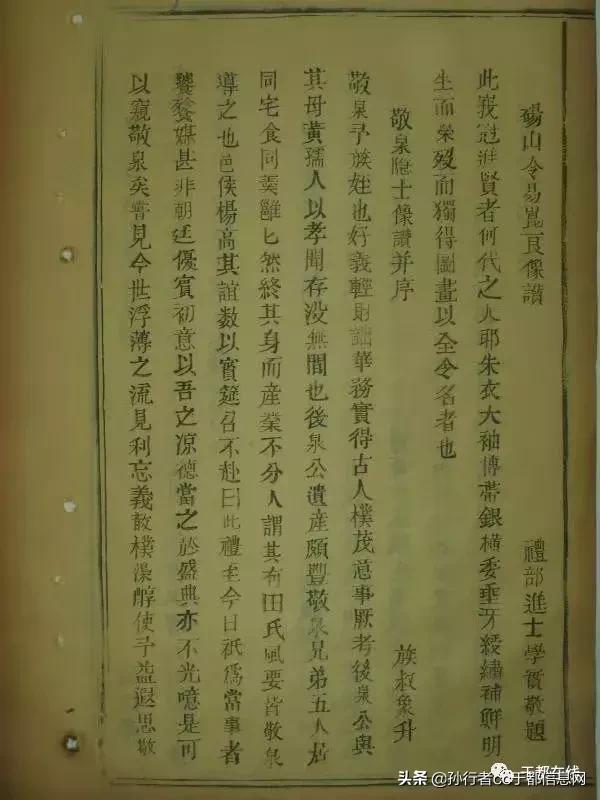 碭山令易崑良像讚
禮部進士學實敬題
此峩冠淮賢者何代之人耶朱衣大袖博帶銀橫委垂牙綬繡補鮮明
生而榮歿而獨得圖畫以全令名者也
敬泉隱士像讚并序
族叔象升
敬泉予族姪也好義輕財詘華務實得古人樸茂意事厥考後泉公與
其母黃孺人以孝聞存没無間也後泉公遺産頗豐敬泉兄弟五人居
同宅食同爨雝匕然終其身而産業不分人謂其有田氏風要皆敬泉
導之也邑侯楊高其誼数以賓筵召不赴曰此禮至今日祇爲當事者
饕餮媒甚非朝廷優賓初意以吾之凉德當之於盛典亦不光噫是可
以窺敬泉矣嘗見今世浮薄之流見利忘義散樸澆醇使予益遐思敬
头条 @孙行者CC于都信息网
于都在线